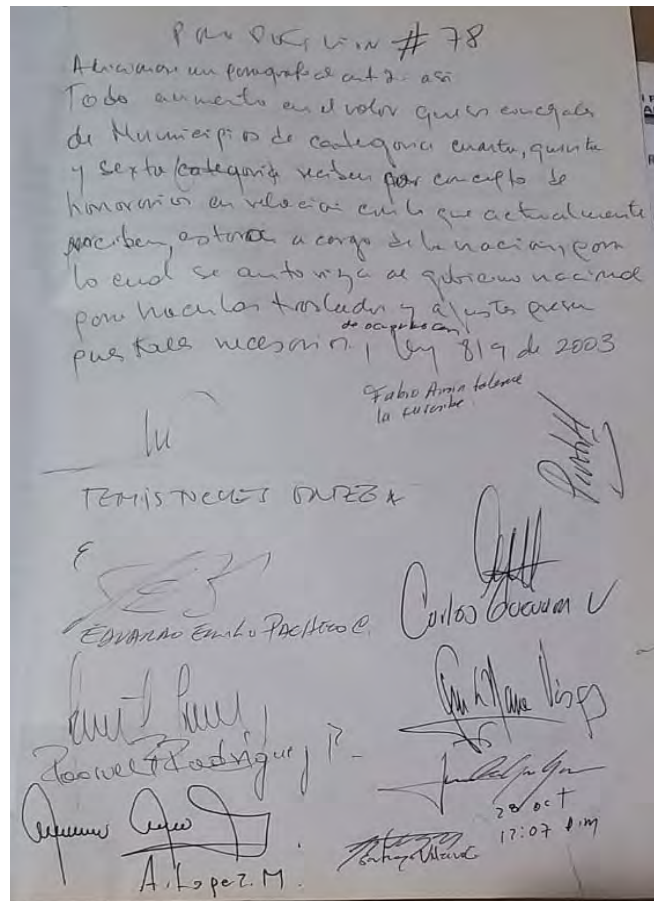 PROPOSICION # 78
Adicionar un paragrafo al art 2. asi
Todo aumento en el valor que los concejales
de Municipios de categoria cuarta, quinta
y sexta categoria reciben por concepto de
honorarios en relacion con lo que actualmente
perciben, estaran a cargo de la nacion, para
lo cual se autoriza al gobierno nacional
para hacer los traslados y ajustes presu
puestales necesarios, de acuerdo con ley 819 de 2003
Fabio Arroyave
la suscribe
TEMISTOCLES ORTEGA
EDUARDO EMILIO PACHECO C.
Carlos Guevara V
Roosvelt Rodriguez R.
A. Lopez. M.
28 oct
12:07 p.m